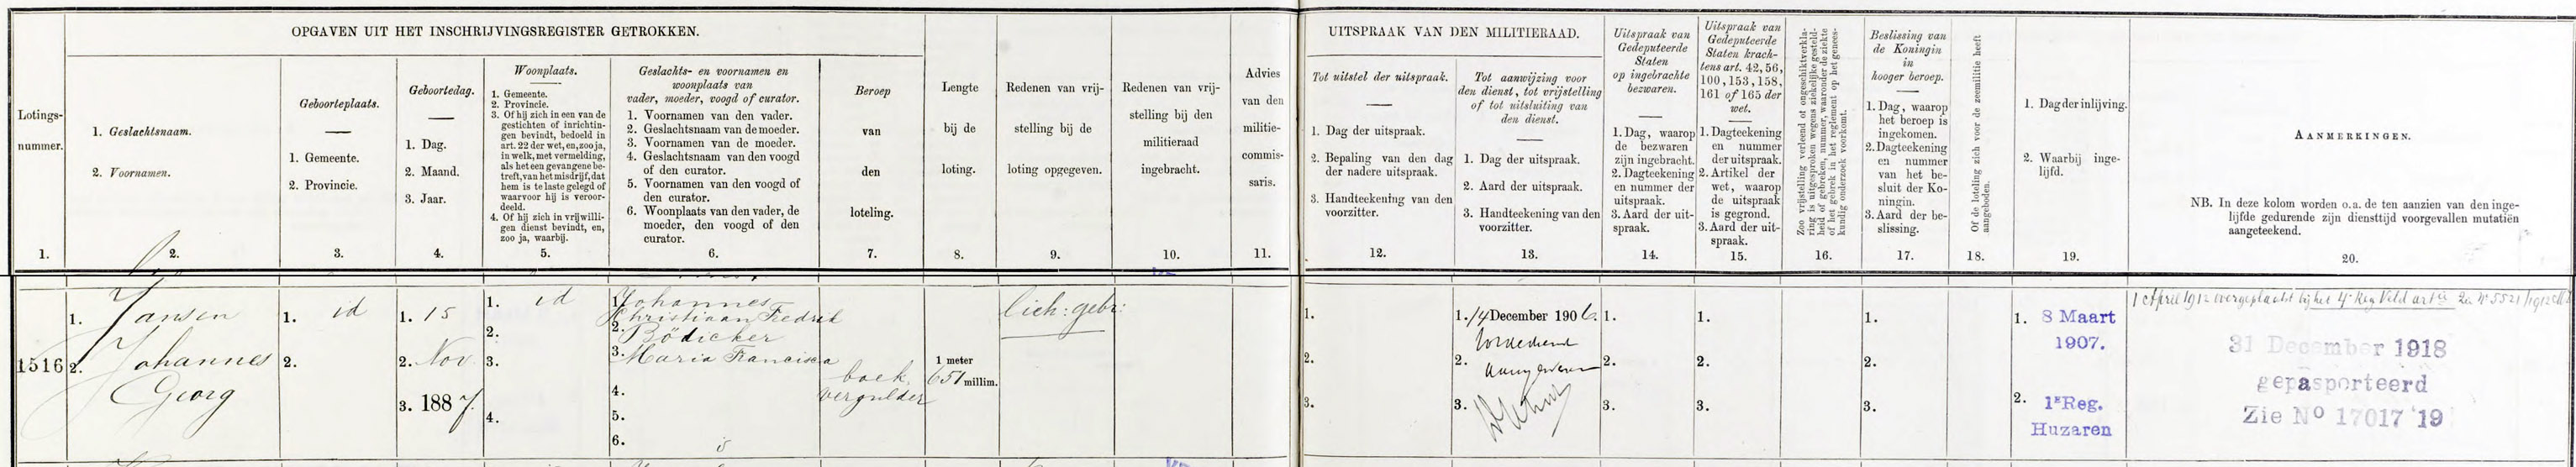 OPGAVEN UIT HET INSCHRIJVINGSREGISTER GETROKKEN.
Lotings-
nummer.
1.
1. Geslachtsnaam.
2. Voornamen.
2.
Geboorteplaats.
1. Gemeente.
2. Provincie.
3.
Geboortedag.
1. Dag.
2. Maand.
3. Jaar.
4.
Woonplaats.
1. Gemeente.
2. Provincie.
3. Of hij zich in een van de
gestichten of inrichtin-
gen bevindt, bedoeld in
art. 22 der wet, en, zoo ja,
in welk, met vermelding,
als het een gevangene be-
treft, van het misdrijf, dat
hem is te laste gelegd of
waarvoor hij is veroor-
deeld.
4. Of hij zich in vrijwilli-
gen dienst bevindt, en,
zoo ja, waarbij.
5.
Geslachts- en voornamen en
woonplaats van
vader, moeder, voogd of curator.
1. Voornamen van den vader.
2. Geslachtsnaam van de moeder.
3. Voornamen van de moeder.
4. Geslachtsnaam van den voogd
of den curator.
5. Voornamen van den voogd of
den curator.
6. Woonplaats van den vader, de
moeder, den voogd of den
curator.
6.
Beroep
van
den
loteling.
7.
Lengte
bij de
loting.
8.
Redenen van vrij-
stelling bij de
loting opgegeven.
9.
Redenen van vrij-
stelling bij den
militieraad
ingebracht.
10.
Advies
van den
militie-
commis-
saris.
11.
UITSPRAAK VAN DEN MILITIERAAD.
Tot uitstel der uitspraak.
1. Dag der uitspraak.
2. Bepaling van den dag
der nadere uitspraak.
3. Handteekening van den
voorzitter.
12.
Tot aanwijzing voor
den dienst, tot vrijstelling
of tot uitsluiting van
den dienst.
1. Dag der uitspraak.
2. Aard der uitspraak.
3. Handteekening van den
voorzitter.
13.
Uitspraak van
Gedeputeerde
Staten
op ingebrachte
bezwaren.
1. Dag, waarop
de bezwaren
zijn ingebracht.
2. Dagteekening
en nummer der
uitspraak.
3. Aard der uit-
spraak.
14.
Uitspraak van
Gedeputeerde
Staten krach-
tens art. 42, 56,
100, 153, 158,
161 of 165 der
wet.
1. Dagteekening
en nummer
der uitspraak.
2. Artikel der
wet, waarop
de uitspraak
is gegrond.
3. Aard der uit-
spraak.
15.
Zoo vrijstelling verleend of ongeschiktverkla-
ring is uitgesproken wegens ziekelijke gesteld-
heid of gebreken, nummer, waaronder de ziekte
of het gebrek in het reglement op het genees-
kundig onderzoek voorkomt.
16.
Beslissing van
de Koningin
in
hooger beroep.
1. Dag, waarop
het beroep is
ingekomen.
2. Dagteekening
en nummer
van het be-
sluit der Ko-
ningin.
3. Aard der be-
slissing.
17.
Of de loteling zich voor de zeemilitie heeft
aangeboden.
18.
1. Dag der inlijving.
2. Waarbij inge-
lijfd.
19.
AANMERKINGEN.
NB. In deze kolom worden o.a. de ten aanzien van den inge-
lijfde gedurende zijn diensttijd voorgevallen mutatiën
aangeteekend.
20.
1516
1. Jansen
2. Johannes
Georg
1. id
2.
1. 15
2. Nov.
3. 1887.
1. id
2.
3.
4.
1. Johannes
Christiaan Fredrik
2. Bödicker
3. Maria Francisca
4.
5.
6.
boek
vergulder
1 meter
651 millim.
lich: gebr:
1.
2.
3.
1. 14 December 1906.
2. Voor den dienst
aangewezen
3.
1.
2.
3.
1.
2.
3.
1.
2.
3.
1. 8 Maart
1907.
2. 1e Reg.
Huzaren
1 April 1912 overgeplaatst bij het 4e Reg Veld artie Zie No 5521/1912
31 December 1918
gepasporteerd
Zie No 17017 '19